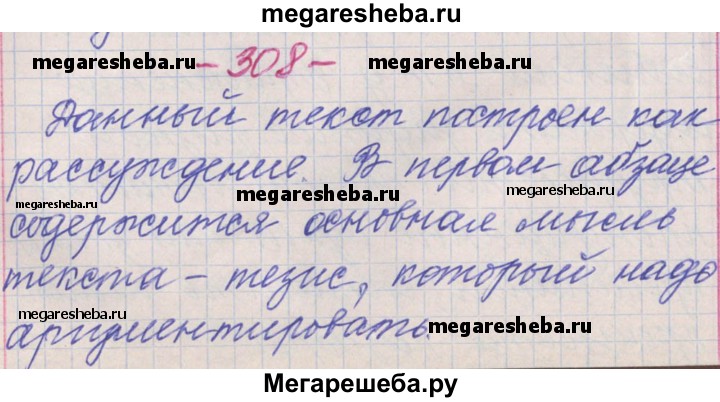 megaresheba.ru
megaresheba.ru - 308 - megaresheba.ru
Данный текст построен как
рассуждение. В первом абзаце
megaresheba.ru megaresheba.ru
содержится основная мысль
текста – тезис, который надо
megaresheba.ru
аргументировать. megaresheba.ru
Мегарешеба.ру